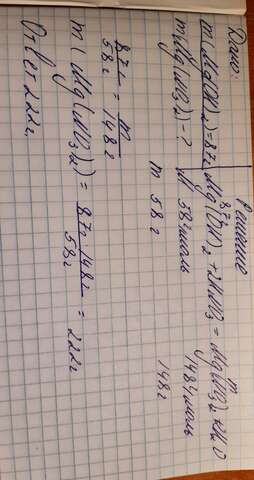 Дано:
m(Mg(OH)2)=87г
mMg(NO3)2)-?
Решение
87г m
Mg(OH)2 + 2HNO3 = Mg(NO3)2 + 2H2O
M 58г/моль 148г/моль
m 58г 148г
87г/58г = m/148г
m(Mg(NO3)2) = 87г·148г/58г = 222г
Ответ 222г.